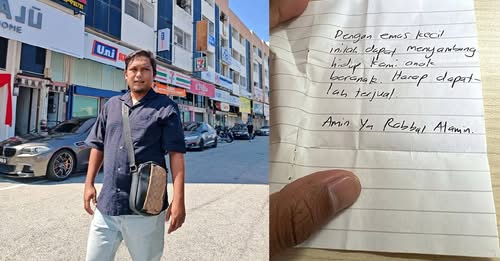 AJÚ
HOME
Uni
Dengan emas kecil
inilah dapat menyambung
hidup kami anak
beranak. Harap dapat-
lah terjual.
Amin Ya Rabbal Alamin.